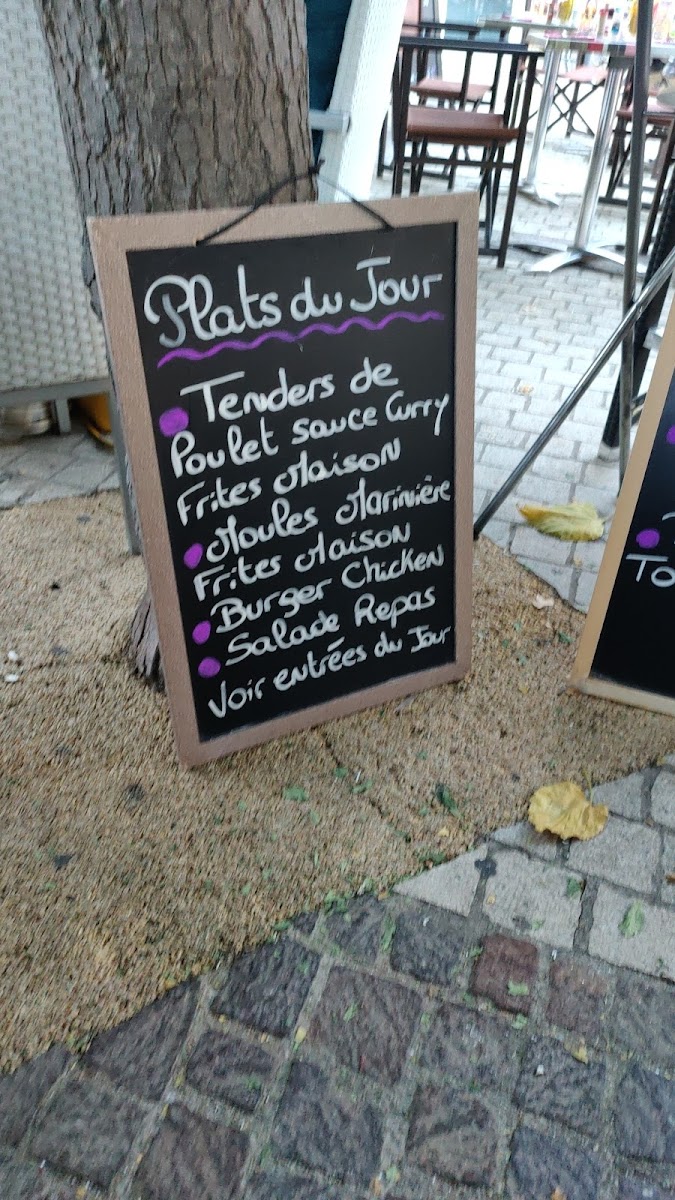 Plats du Jour
Tenders de
Poulet sauce Curry
Frites Maison
Moules Marinière
Frites Maison
Burger Chicken
Salade Repas
Voir entrées du Jour
To